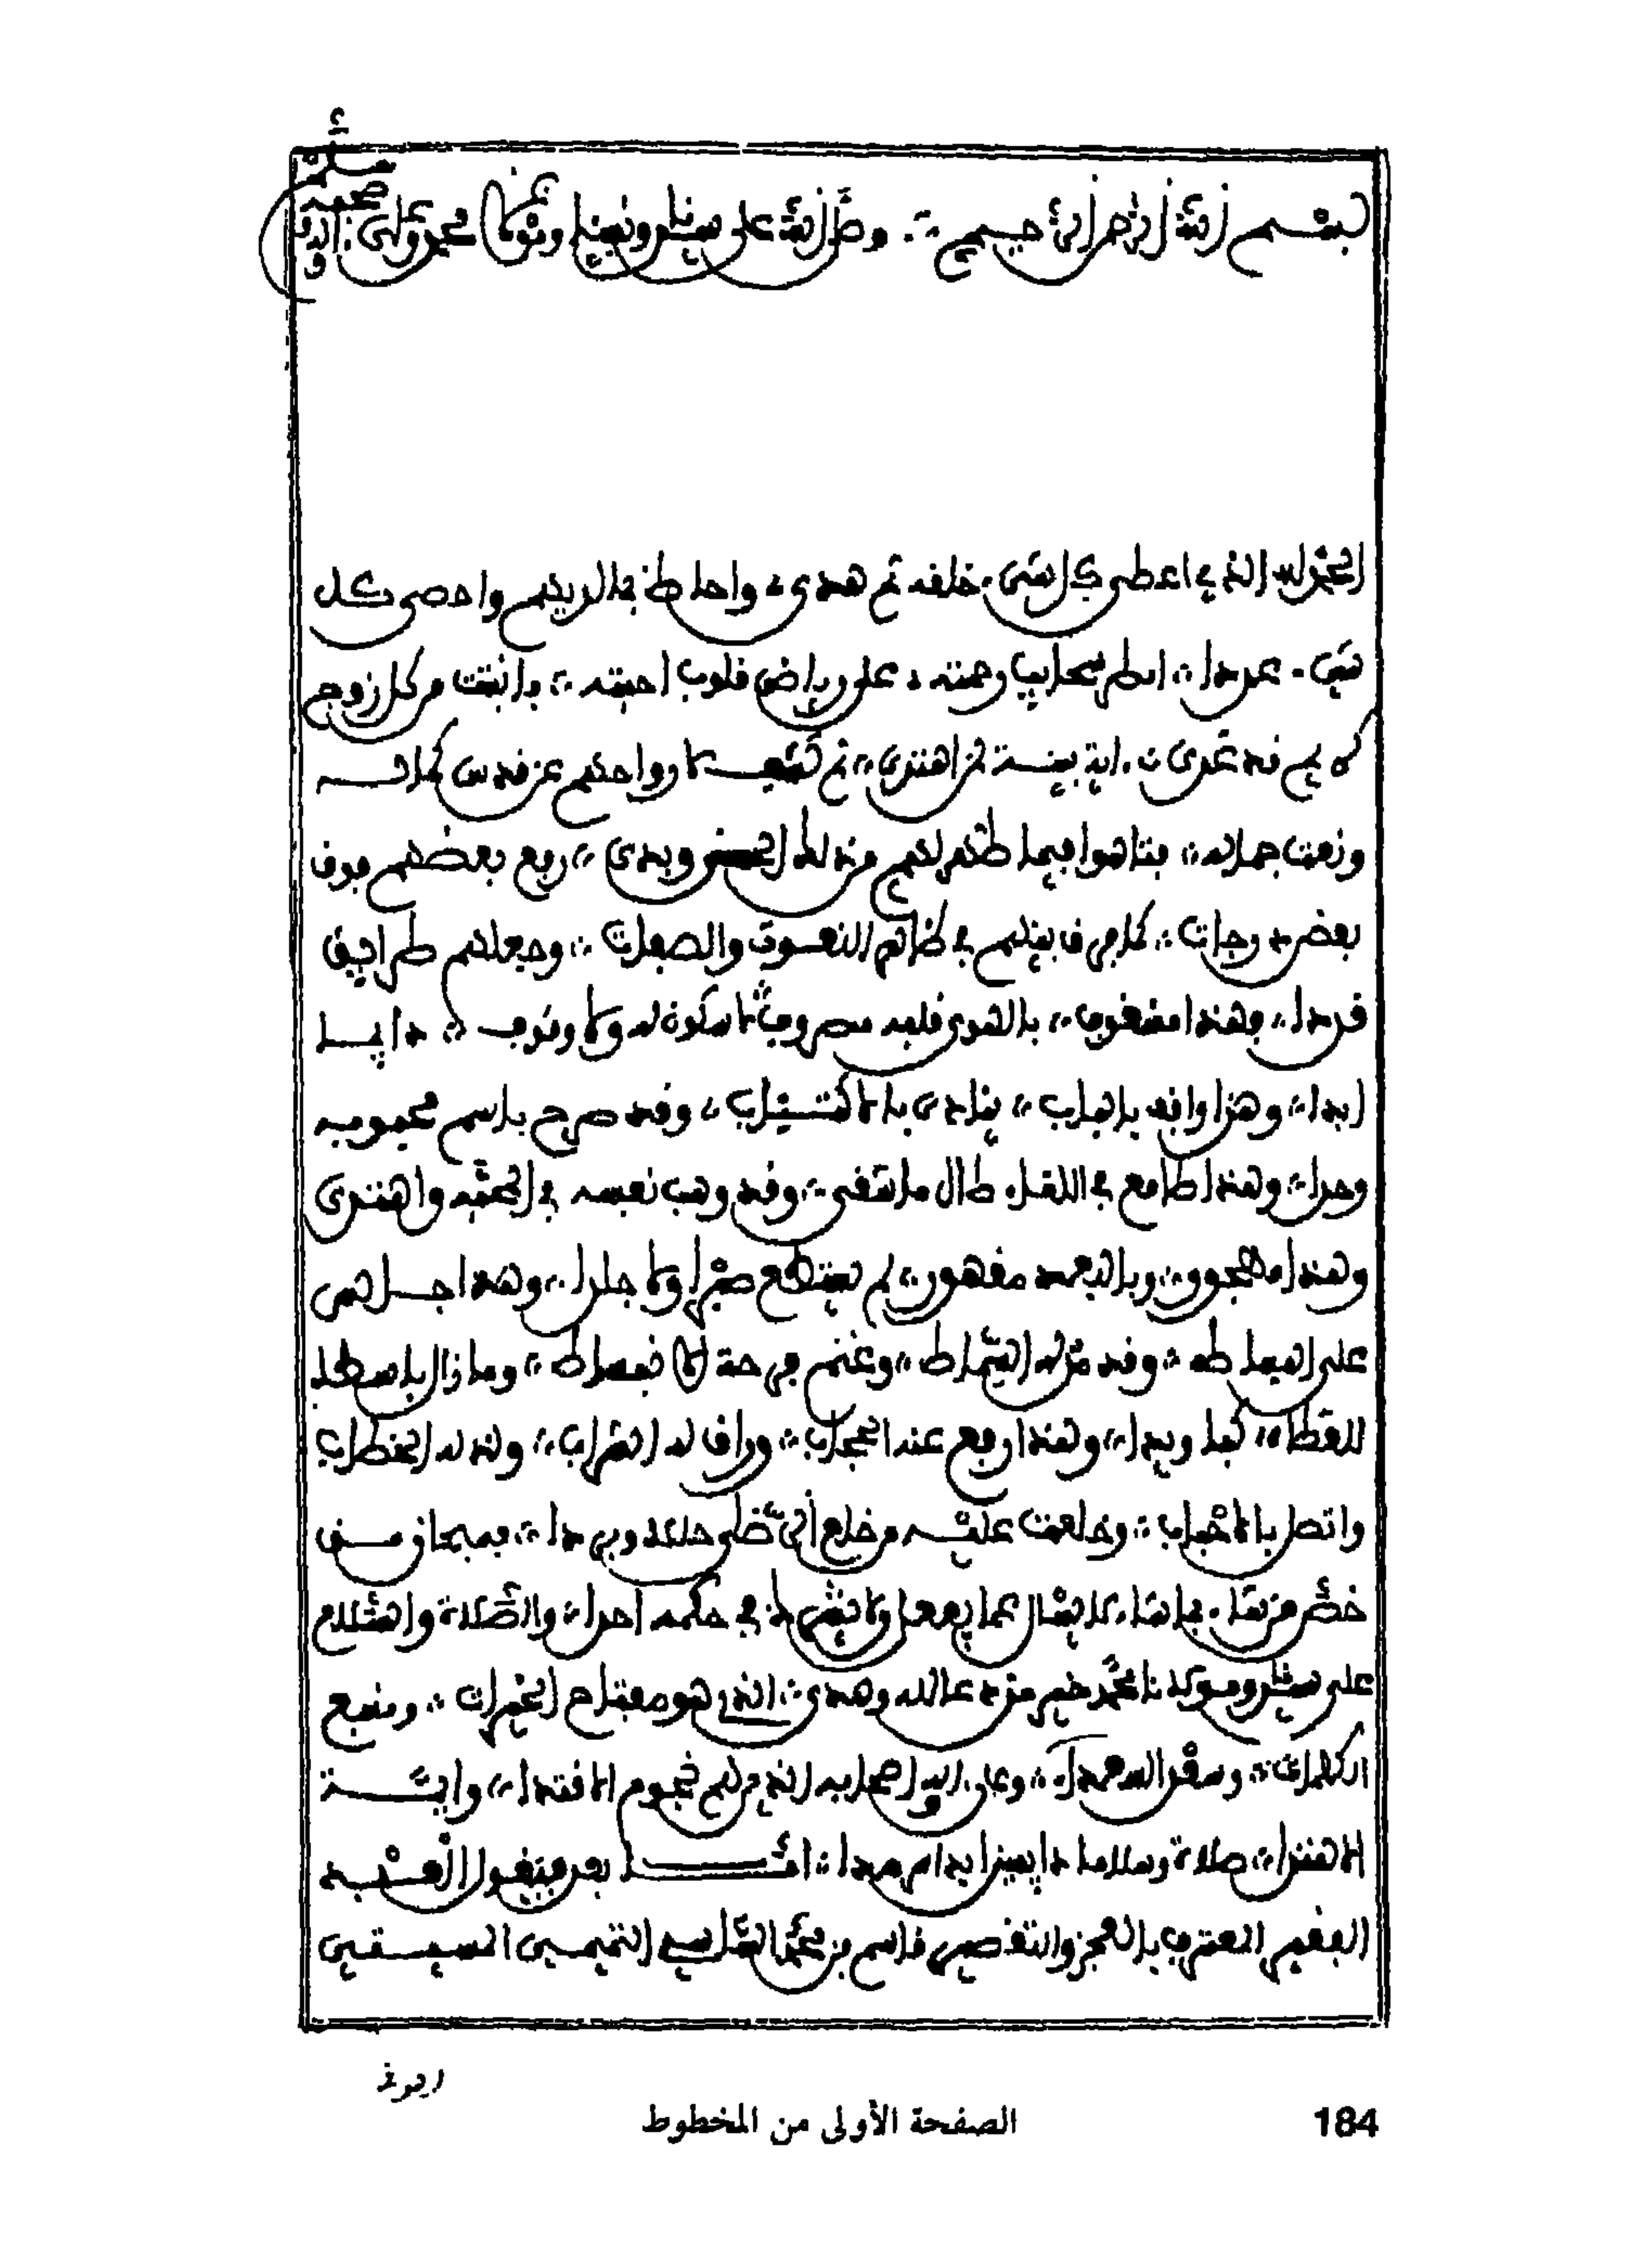 بسم الله الرحمن الرحيم وصلى الله على سيدنا ونبينا ومولانا محمد وعلى آله وصحبه وسلم
الحمد لله الذي اعطى كل شيء خلقه ثم هدى واحاط بما لديهم واحصى كل
شيء عددا امطر سحايب رحمته على رياض قلوب احبته فانبتت من كل زوج
كريم قد تمدى اية بينة لمن اهتدى ثم كشف لارواحهم عن قدس كماله
ونعت جماله فتاهوا فيما ظهر لهم من ذلك الحسن وبدى رفع بعضهم فوق
بعض درجات كما فرق بينهم في النعوت والصفات وجعلهم طرايق
قددا فهذا مشغوف بالهوى قلبه مصروف لا سكون له ولا وقوف دايما
ابدا وهذا واقف بالباب ينادي بالاكتساب وقد صرح باسم محبوبه
وحدا وهذا طامع في اللقا طال ما شقى وقد وهب نفسه في المحبة واهتدى
وهذا مهجور وبالبعد مقهور لم يستطع صبرا ولا جلدا وهذا جلس
على البساط وقد مد له السماط وغنم فرحة الانبساط وما زال باسطا
للعطا كفا ويدا وهذا رفع عنه الحجاب وراق له الشراب ولذ له الخطاب
واتصل بالاحباب وخلعت عليه من خلع الرضى حللا وبردا فسبحان من
خص من شاء بما شاء لا يسأل عما يفعل ولا يشرك في حكمه احدا والصلاة والسلام
على سيدنا ومولانا محمد خير من دعا لله وهدى الذي هو مفتاح الخيرات ومنبع
الكمالات وسفر السعدا وعلى اله واصحابه الذين لهم نجوم الاقتدا وايمة
الاهتدا صلاة وسلاما دايمين ابدا سرمدا اما بعد فيقول العبد
الفقير المعترف بالعجز والتقصير قاسم بن محمد التميمي
184
الصفحة الأولى من المخطوط